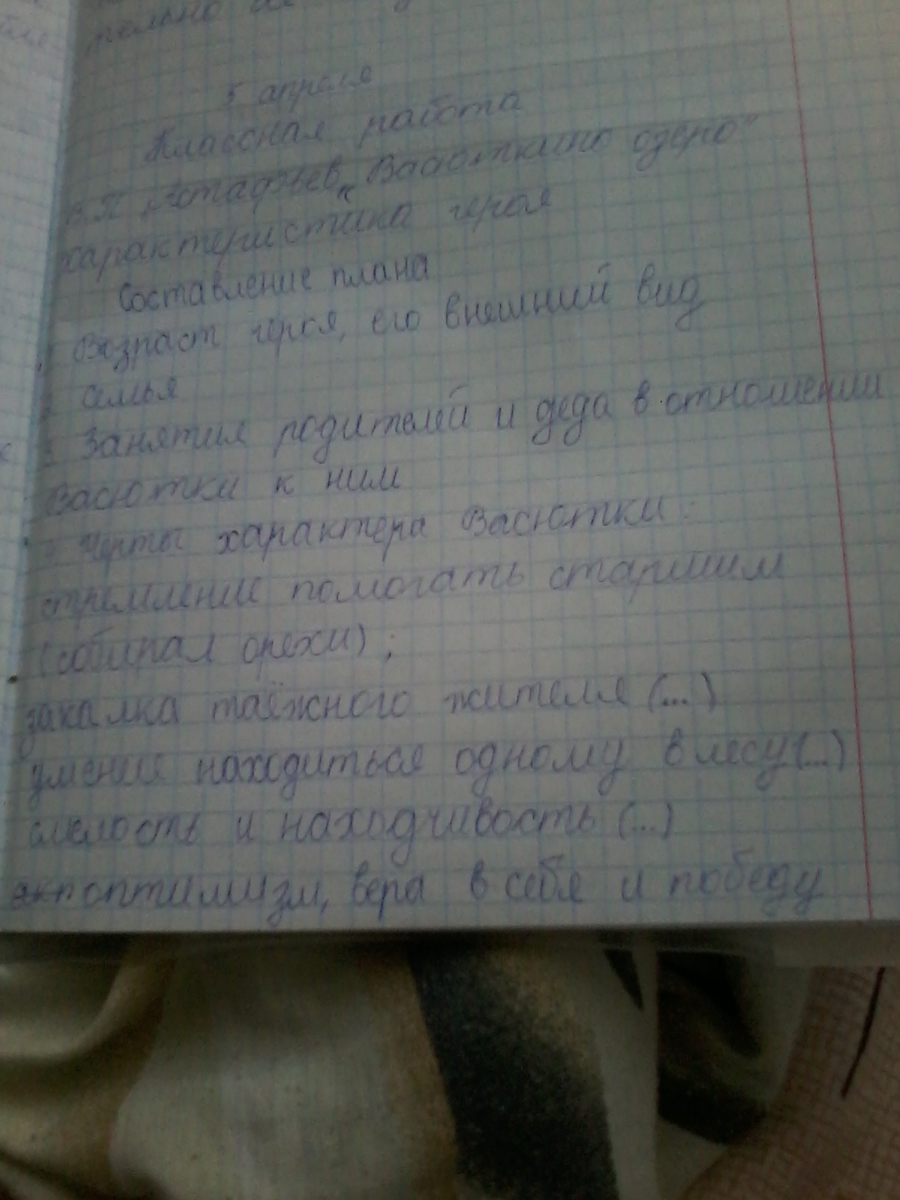 тельно
5 апреля
Классная работа
В.П. Астафьев „Васюткино озеро"
характеристика героя
Составление плана
Возраст героя, его внешний вид
семья
Занятия родителей и деда в отношении
Васютки к ним
Черты характера Васютки:
стремление помогать старшим
(собирал орехи);
закалка таёжного жителя (...)
умение находиться одному в лесу (...)
смелость и находчивость (...)
оптимизм, вера в себя и победу